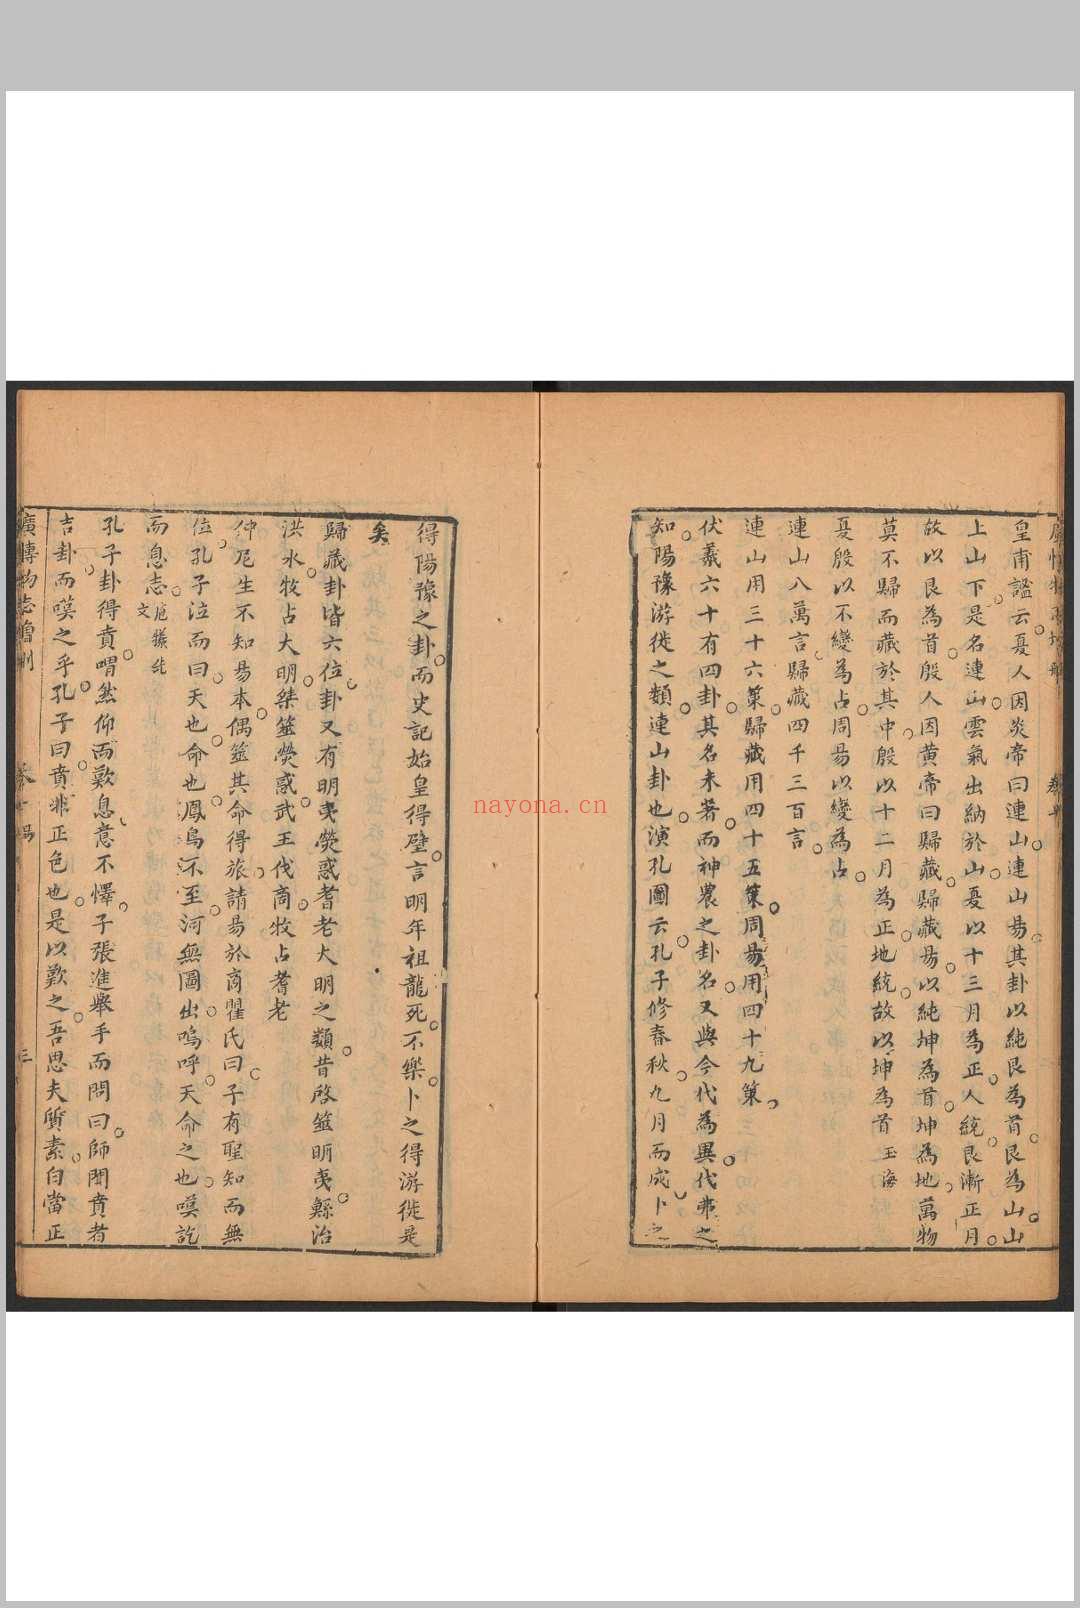 皇甫謐云夏人因炎帝曰連山連山昜其卦以純艮為首艮為山山
上山下是名連山雲氣出納於山夏以十三月為正人統艮漸正月
故以艮為首殷人因黄帝曰歸藏歸藏昜以純坤為首坤為地萬物
莫不歸而藏於其中殷以十二月為正地統故以坤為首 玉海
夏殷以不變為占周昜以變為占
連山八萬言歸藏四千三百言
連山用三十六策歸藏用四十五策周昜用四十九策
伏羲六十有四卦其名未著而神農之卦名又與今代為異代弗之
知陽豫游徙之類連山卦也演孔圖云孔子修春秋九月而成卜之
得陽豫之卦而史記始皇得璧言明年祖龍死不樂卜之得游徙是
矣
歸藏卦皆六位卦又有明夷熒惑耆老大明之類昔啓筮明夷鯀治
洪水牧占大明桀筮熒惑武王伐商牧占耆老
仲尼生不知昜本偶筮其命得旅請昜於商瞿氏曰子有聖知而無
位孔子泣而曰天也命也鳳鳥不至河無圖出嗚呼天命之也嘆訖
而息志
孔子卦得賁喟然仰而歎息意不懌子張進舉手而問曰師聞賁者
吉卦而嘆之乎孔子曰賁非正色也是以歎之吾思夫質素白當正
廣博物志
卷十
三
nayona.cn